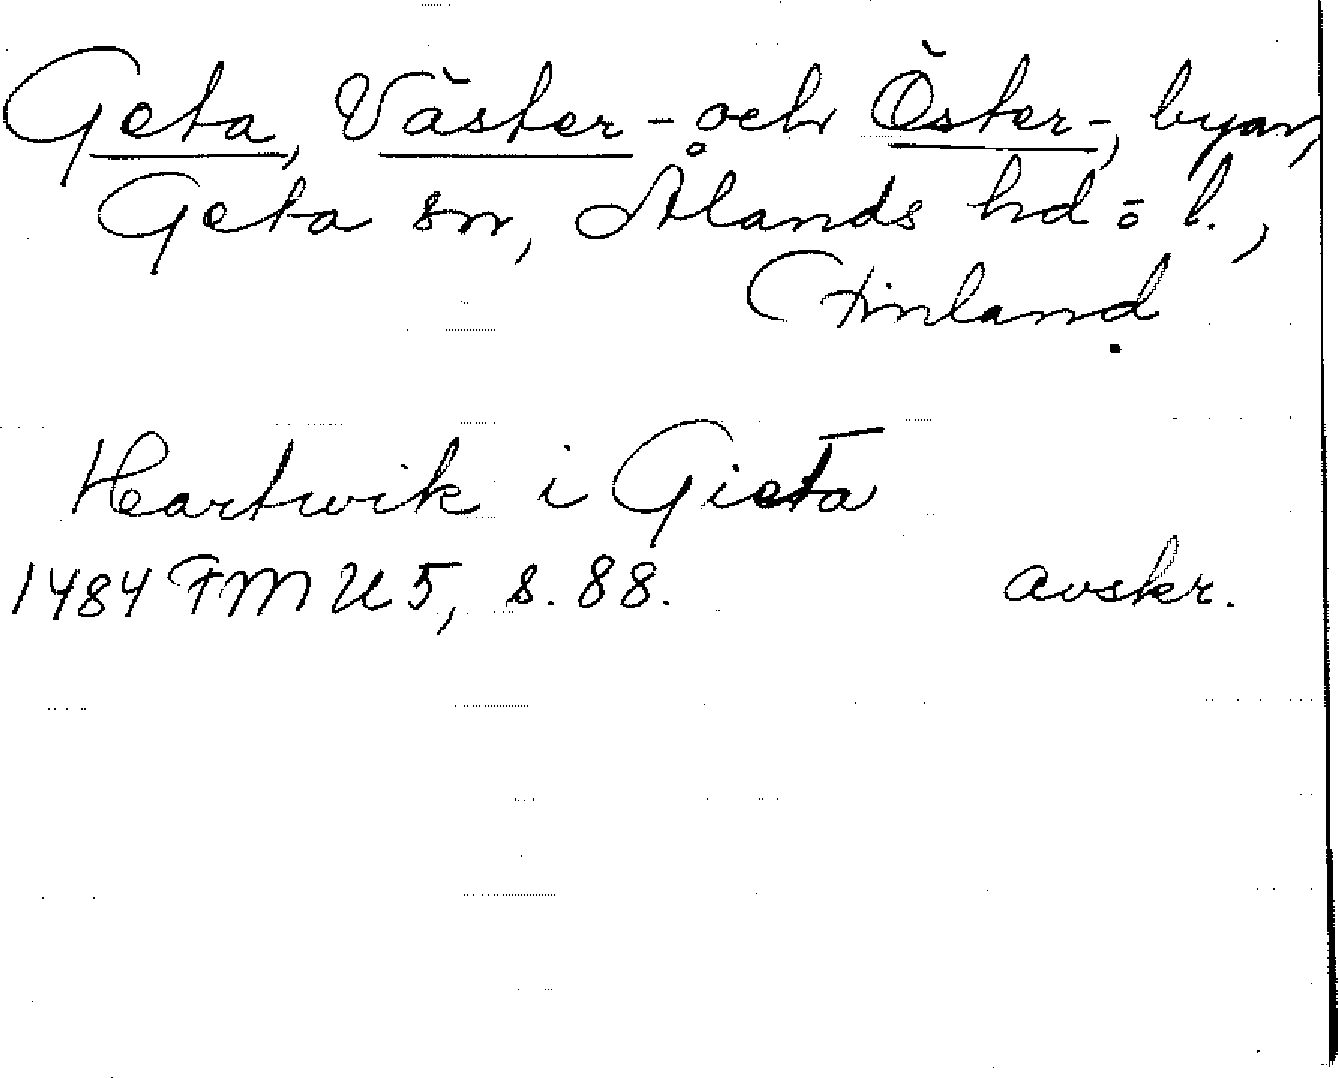 Geta, Väster- och Öster-, byar,
Geta sn, Ålands hd o l.,
Finland.
Hartwik i Gieta
1484 FMU 5, s. 88. avskr.